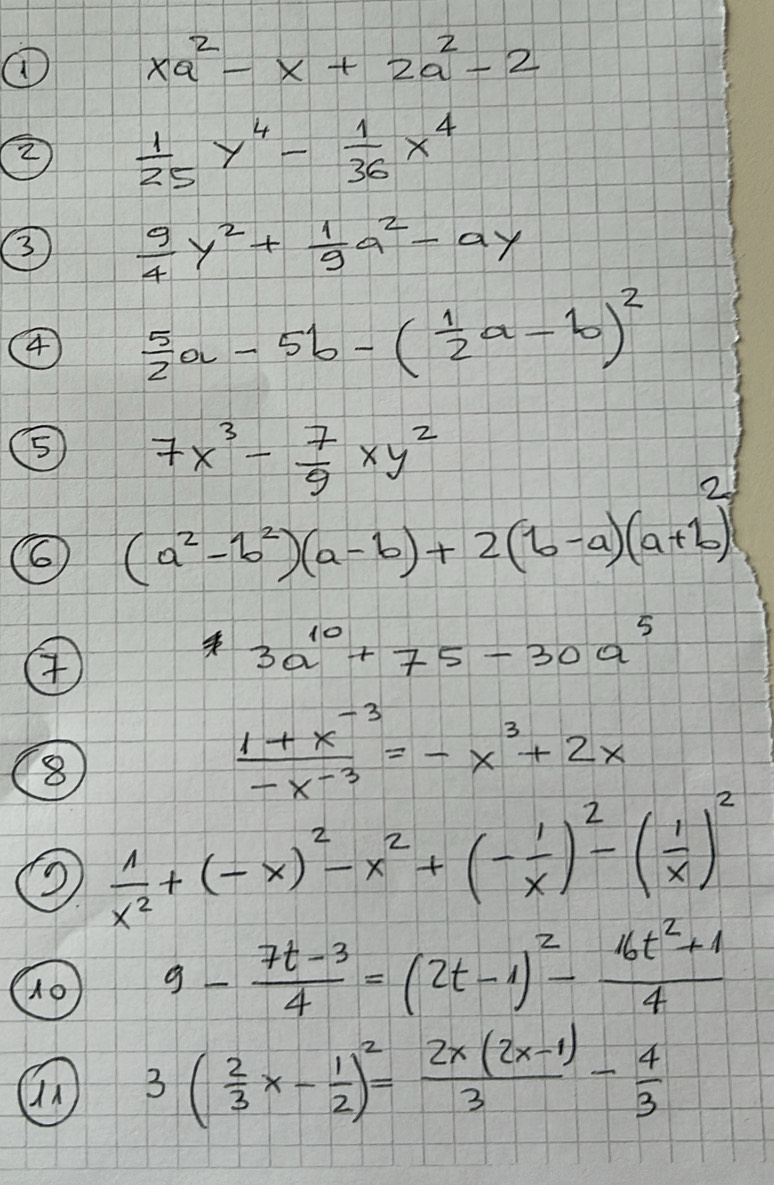 ① xa² - x + 2a² - 2
② 1/25 y⁴ - 1/36 x⁴
③ 9/4 y² + 1/9 a² - ay
④ 5/2 a - 5b - (1/2 a - b)²
⑤ 7x³ - 7/9 xy²
⑥ (a² - b²)(a - b) + 2(b - a)(a + b)²
⑦ 3a¹⁰ + 75 - 30a⁵
⑧ (1 + x⁻³)/(-x⁻³) = -x³ + 2x
⑨ 1/x² + (-x)² - x² + (-1/x)² - (1/x)²
⑩ 9 - (7t - 3)/4 = (2t - 1)² - (16t² + 1)/4
⑪ 3(2/3 x - 1/2)² = 2x(2x - 1)/3 - 4/3